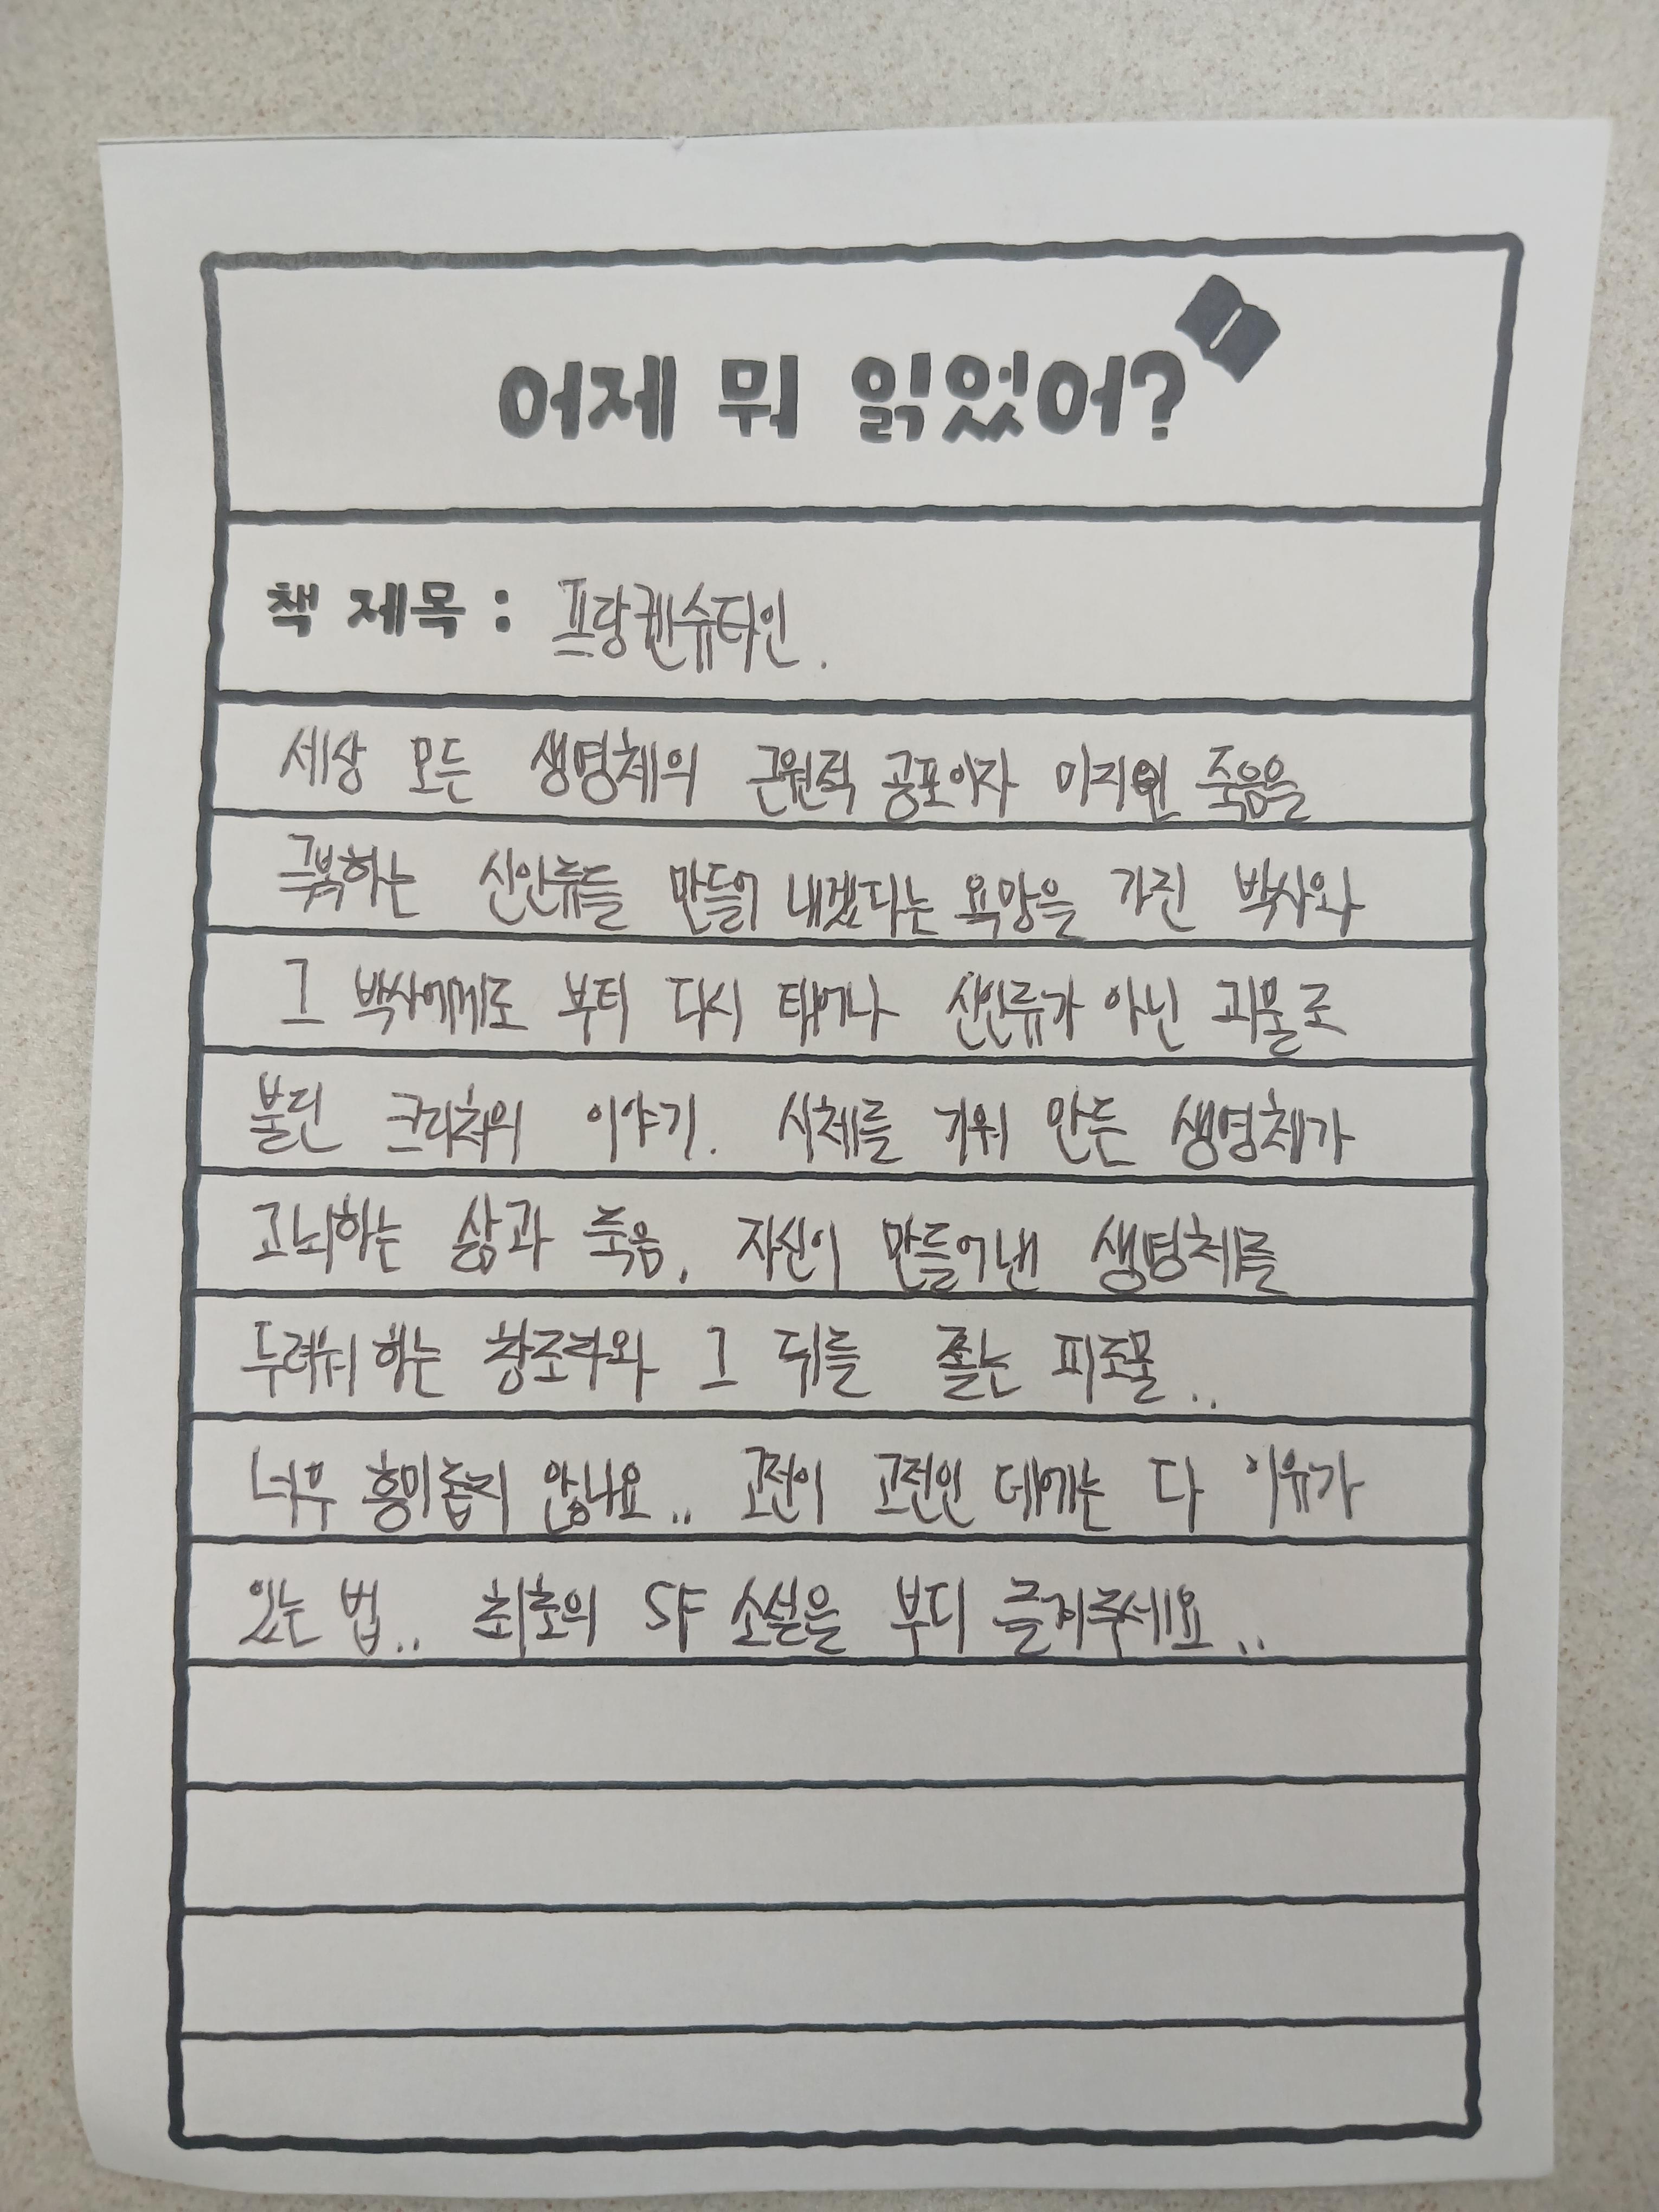 어제 뭐 읽었어?
책 제목 : 프랑켄슈타인.
세상 모든 생명체의 근원적 공포이자 미지인 죽음을
극복하는 신인류를 만들어 내겠다는 욕망을 가진 박사와
그 박사에게로 부터 다시 태어나 신인류가 아닌 괴물로
불린 크리처의 이야기. 시체를 기워 만든 생명체가
고뇌하는 삶과 죽음, 자신이 만들어낸 생명체를
두려워 하는 창조자와 그 뒤를 쫓는 피조물..
너무 흥미롭지 않나요.. 고전이 고전인 데에는 다 이유가
있는 법.. 최초의 SF 소설을 부디 즐겨주세요..